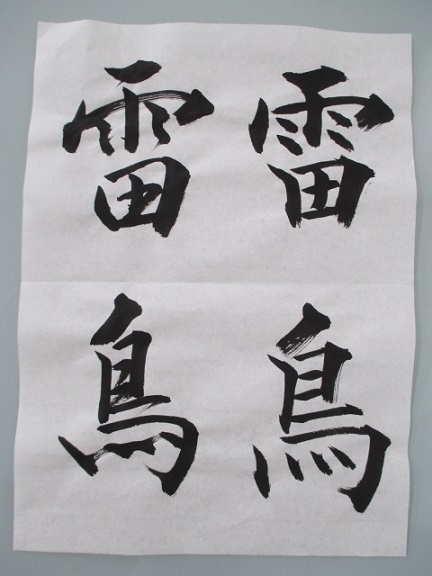 雷鳥
雷鳥